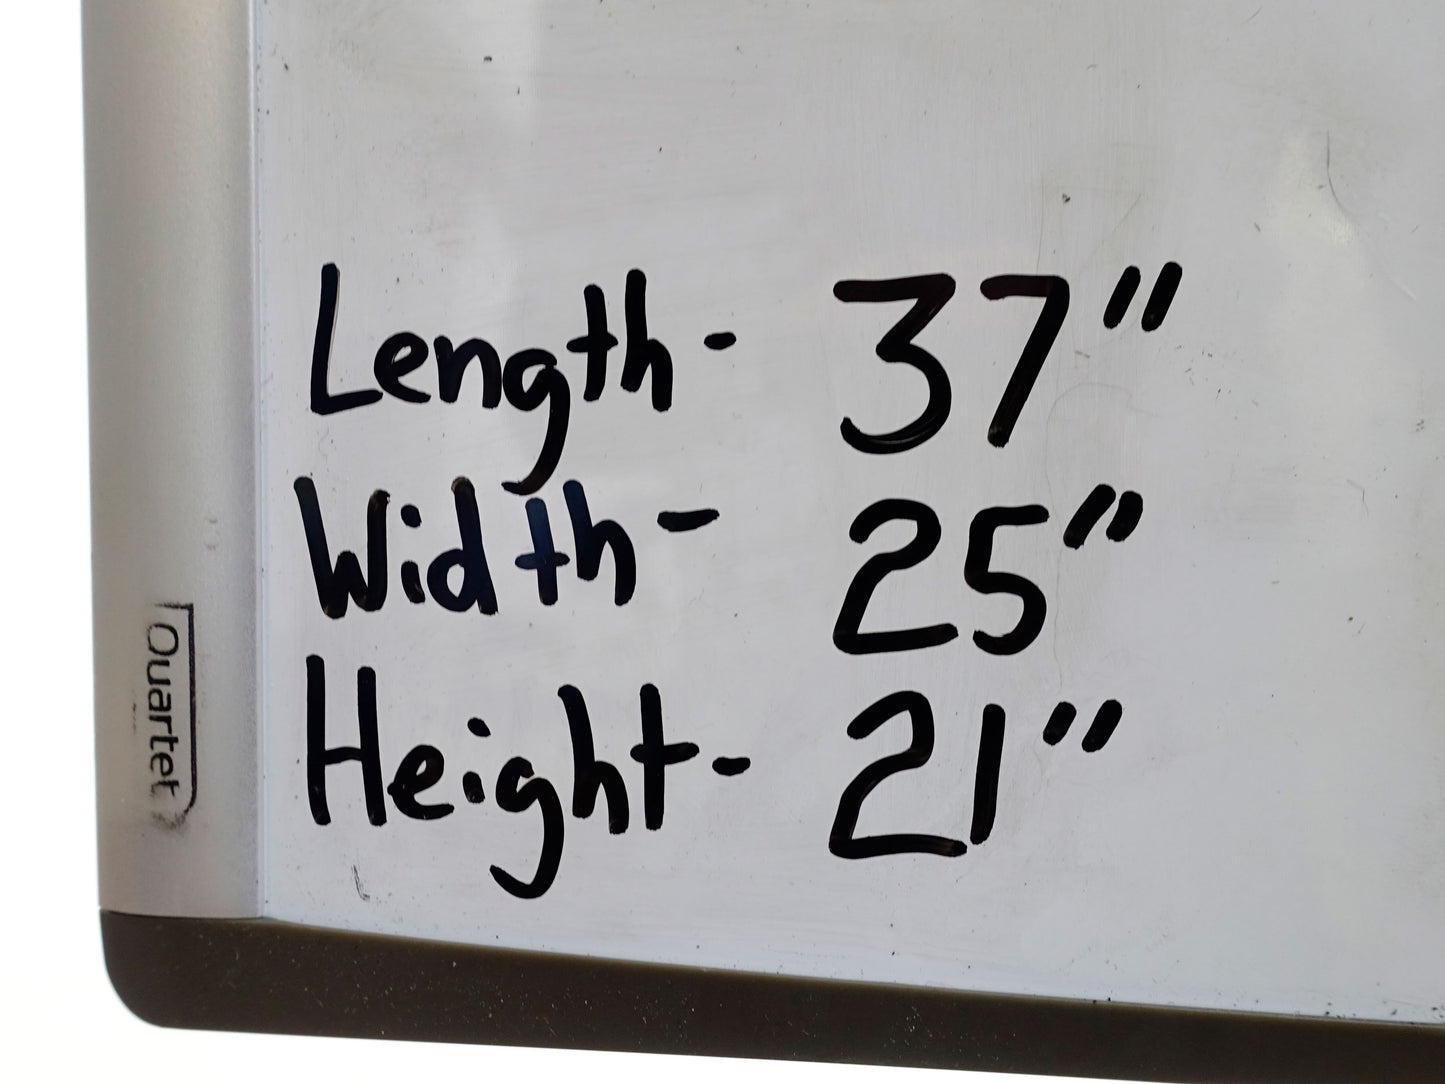 Length- 37"
Width- 25"
Height- 21"
Quartet